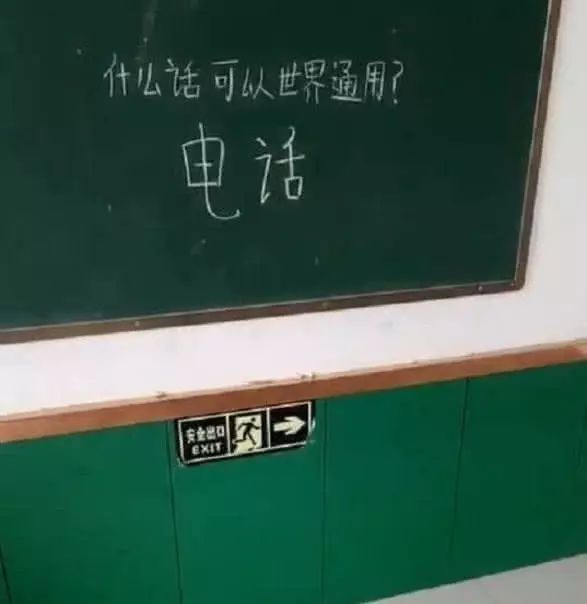 什么话可以世界通用?
电话
安全出口
EXIT